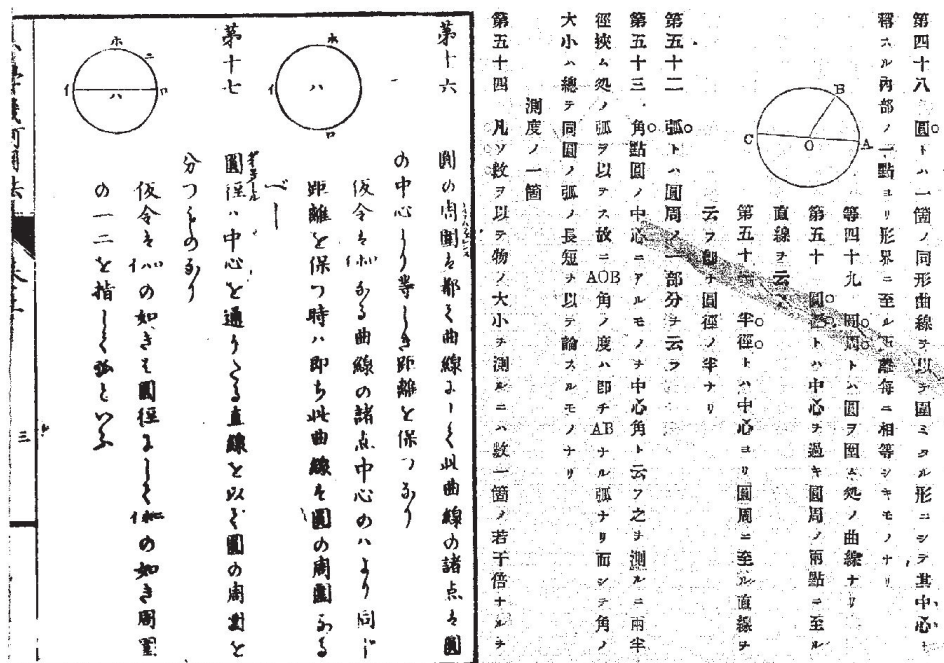 第四十八 圓トハ一箇ノ同形曲線ヲ以テ圍ミタル形ニシテ其中心ト
稱スル內部ノ一點ヨリ形界ニ至ル距離每ニ相等シキモノナリ
B
C
O
A
第四十九 圓周トハ圓ヲ圍ム処ノ曲線ナリ
第五十 圓徑トハ中心ヲ過キ圓周ノ兩點ニ至ル
直線ヲ云フ
第五十一 半徑トハ中心ヨリ圓周ニ至ル直線ヲ
云フ卽チ圓徑ノ半ナリ
第五十二 弧トハ圓周ノ一部分ヲ云フ
第五十三 角點圓ノ中心ニアルモノヲ中心角ト云フ之ヲ測ルニ兩半
徑挾ム処ノ弧ヲ以テス故ニAOB角ノ度ハ卽チABナル弧ナリ而シテ角ノ
大小ハ總テ同圓ノ弧ノ長短ヲ以テ論スルモノナリ
測度ノ一箇
第五十四 凡ソ數ヲ以テ物ノ大小ヲ測ルニハ數一箇ノ若干倍ナルヲ
第十六 圓の周圍を都く曲線にしく此曲線の諸点を圓
の中心より等しき距離を保つなり
ホ
イ
ハ
ロ
仮令を なる曲線の諸点中心のハより同じ
距離を保つ時ハ即ち此曲線を圓の周圍なる
べし
第十七 圓徑ハ中心を通りたる直線を以て圓の周圍を
分つものなり
ホ
ニ
イ
ハ
ロ
仮令を の如きを圓徑にしく の如き周圍
の一二を指しく弧といふ
三